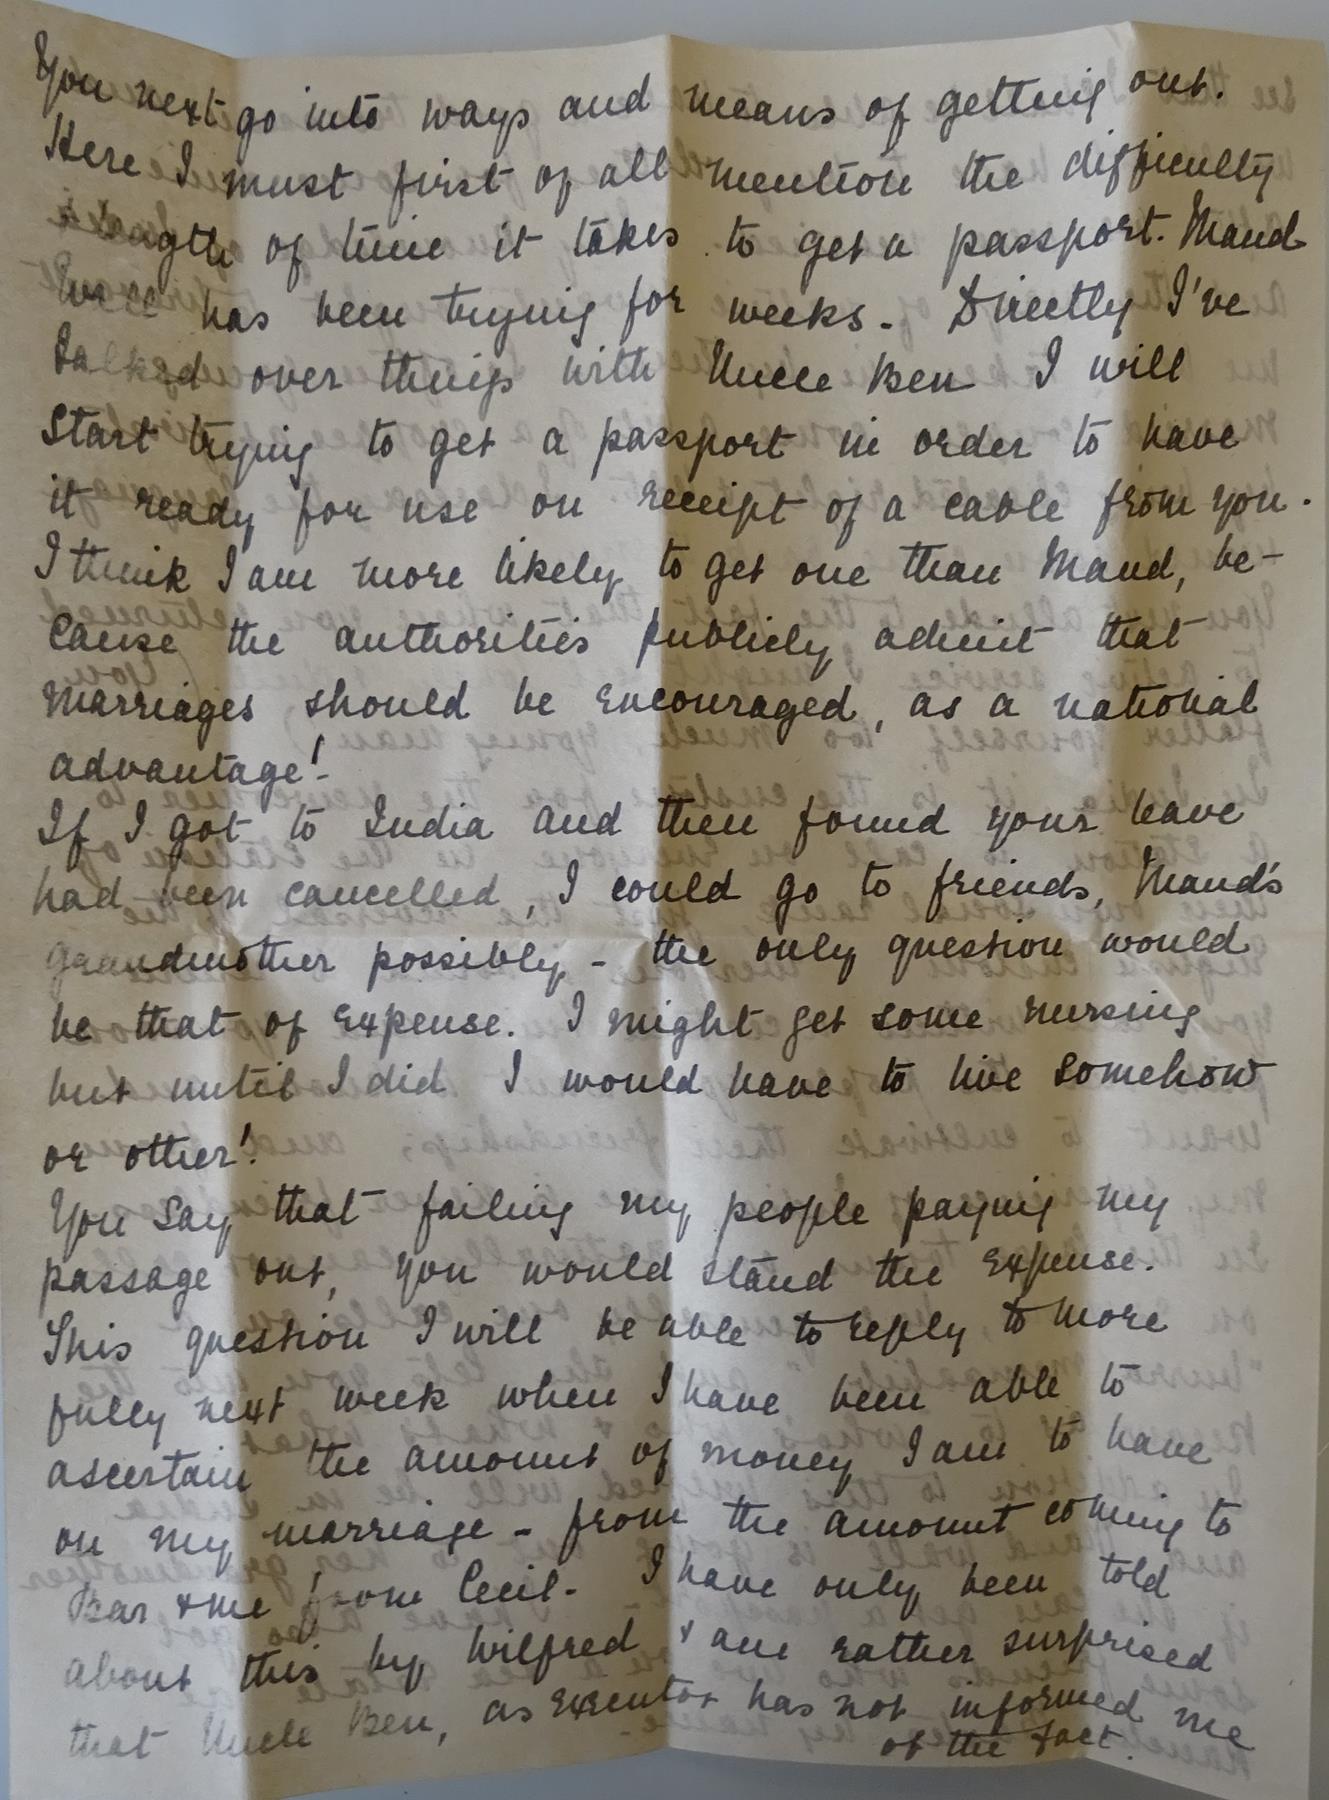 You next go into ways and means of getting out.
Here I must first of all mention the difficulty
& length of time it takes to get a passport. Maud
Wall has been trying for weeks. Directly I've
talked over things with Uncle Ben I will
start trying to get a passport in order to have
it ready for use on receipt of a cable from you.
I think I am more likely to get one than Maud, be-
cause the authorities publicly admit that
marriages should be encouraged, as a national
advantage!
If I got to India and then found your leave
had been cancelled, I could go to friends, Maud's
grandmother possibly - the only question would
be that of expense. I might get some nursing
but until I did I would have to live somehow
or other!
You say that failing my people paying my
passage out, you would stand the expense.
This question I will be able to reply to more
fully next week when I have been able to
ascertain the amount of money I am to have
on my marriage - from the amount coming to
Bar & me from Cecil. I have only been told
about this by Wilfred & am rather surprised
that Uncle Ben, as executor has not informed me
of the fact.